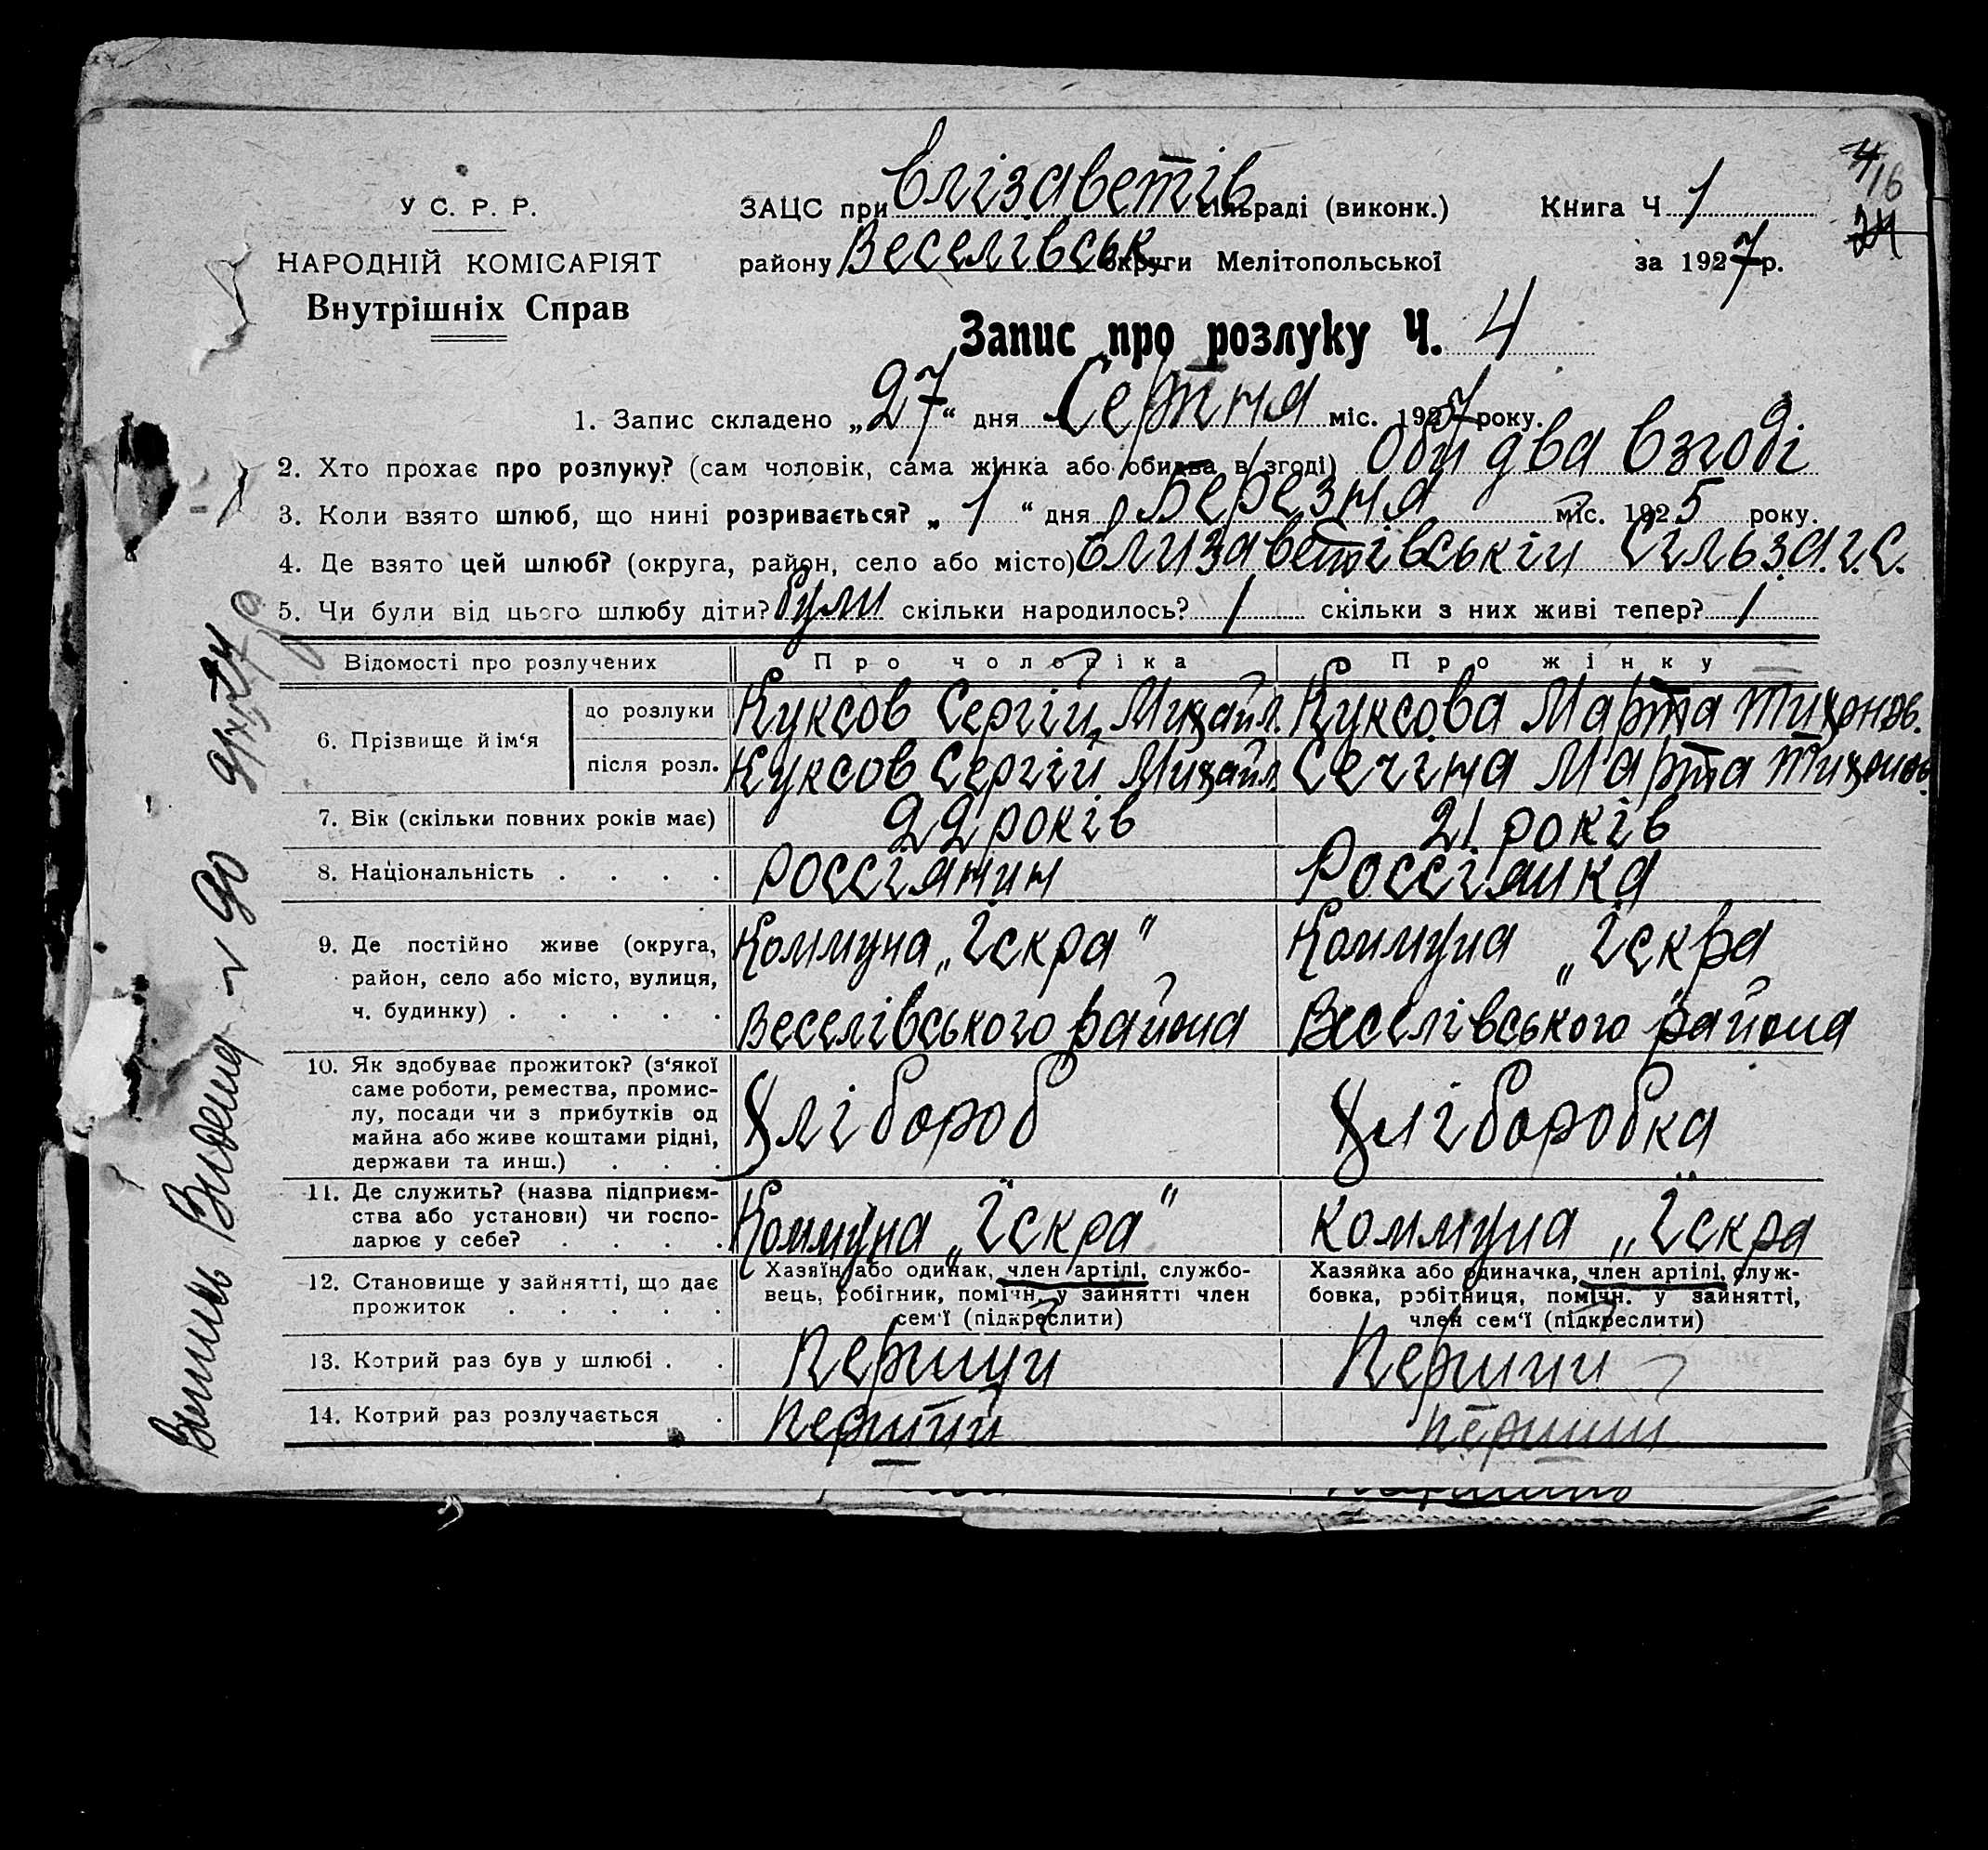 У С. Р. Р.
НАРОДНІЙ КОМІСАРІЯТ
Внутрішніх Справ
ЗАЦС при Єлізаветів сільраді (виконк.)
району Веселівськ округи Мелітопольської
Книга Ч 1
за 1927 р.
16
24
Запис про розлуку Ч. 4
1. Запис складено „27“ дня Серпня міс. 1927 року.
2. Хто прохає про розлуку? (сам чоловік, сама жінка або обидва в згоді) Обидва взгоді
3. Коли взято шлюб, що нині розривається? „1“ дня Березня міс. 1925 року.
4. Де взято цей шлюб? (округа, район, село або місто) Єлизаветівській Сільз.а.г.с.
5. Чи були від цього шлюбу діти? були скільки народилось? 1 скільки з них живі тепер? 1
Відомості про розлучених Про чоловіка Про жінку
6. Прізвище й ім‘я
до розлуки Куксов Сергій Михайл. Куксова Марта Тихонов.
після розл. Куксов Сергій Михайл. Сечіна Марта Тихонов.
7. Вік (скільки повних років має) 22 років 21 років
8. Національність . . . . россіянин Россіянка
9. Де постійно живе (округа, район, село або місто, вулиця, ч. будинку) . . . . .
Коммуна „Іскра“
Веселівського района
Коммуна „Іскра
Веселівського района
10. Як здобуває прожиток? (з‘якої
саме роботи, ремества, промис-
лу, посади чи з прибутків од
майна або живе коштами рідні,
держави та инш.) . . .
Хлібороб
Хліборобка
11. Де служить? (назва підприєм-
ства або установи) чи госпо-
дарює у себе? . . . .
Коммуна „Іскра“
Коммуна „Іскра
12. Становище у зайнятті, що дає
прожиток . . . . .
Хазяїн або одинак, член артілі, службо-
вець, робітник, помічн. у зайнятті член
сем‘ї (підкреслити)
Хазяйка або одиначка, член артілі, служ-
бовка, робітниця, помічн. у зайнятті,
член сем‘ї (підкреслити)
13. Котрий раз був у шлюбі . . Перший Перший
14. Котрий раз розлучається . Перший перший